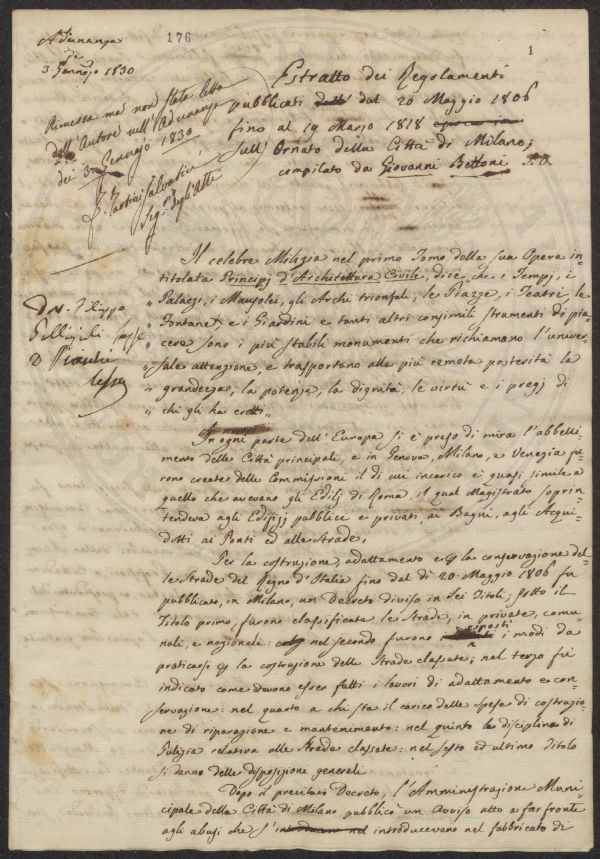 Adunanza
de
3. Gennajo 1830
176
1
Rimessa ma non stata letta
dall'Autore nell'Adunanza
dei 3 Gennajo 1830
Segr. degli Atti
Estratto dei Regolamenti
pubblicati dal 20 Maggio 1806
fino al 19 Marzo 1818
sull'Ornato della Città di Milano;
compilato da Giovanni Bettoni
Il celebre Milizia nel primo Tomo della sua Opera in-
titolata Principj d'Architettura Civile, dice, che i Tempj, i
" Palazzi, i Mausolei, gli Archi trionfali, le Piazze, i Teatri, le
" Fontane, e i Giardini e tanti altri consimili strumenti di pia-
" cere sono i più stabili monumenti che richiamano l'univer-
" sale attenzione, e trasportano alla più remota posterità la
" grandezza, la potenza, la dignità, le virtù e i pregj di
" chi gli ha eretti "
In ogni parte dell'Europa si è preso di mira l'abbelli-
mento delle Città principali, e in Genova, Milano, e Venezia fu-
rono create delle Commissioni il di cui incarico è quasi simile a
quello che avevano gli Edilj di Roma, il qual Magistrato soprin-
tendeva agli Edifizj pubblici e privati, ai Bagni, agli Acqui-
dotti ai Ponti ed alle Strade.
Per la costruzione, adattamento e la conservazione del-
le Strade del Regno d'Italia fino dal dì 20 Maggio 1806 fu
pubblicato, in Milano, un Decreto diviso in Sei Titoli; sotto il
Titolo primo, furono classificate le Strade, in private, comu-
nali, e nazionale: nel secondo furono esposti i modi da
praticarsi la costruzione delle Strade classate; nel terzo fu
indicato come devono esser fatti i lavori di adattamento e con-
servazione: nel quarto a chi sta il carico delle spese di costruzio-
ne di riparazione e mantenimento: nel quinto la disciplina di
Pulizia relativa alle Strade classate: nel sesto ed ultimo Titolo
si danno delle disposizione generali.
Dopo il precitato Decreto, l'Amministrazione Muni-
cipale della Città di Milano pubblicò un Avviso atto a far fronte
agli abusi che s'introducevano nel fabbricato di